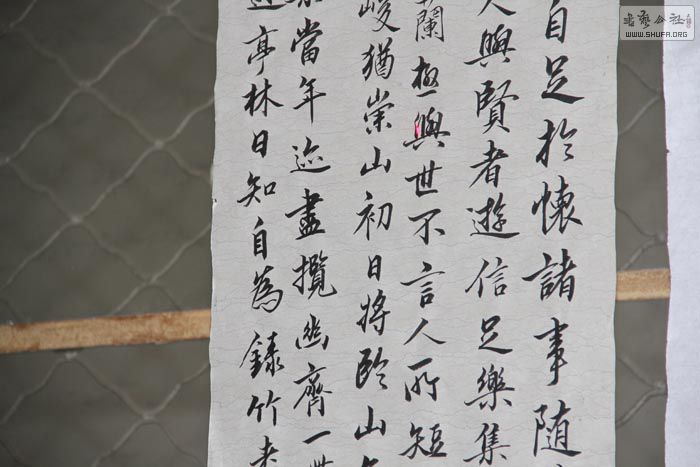 自足於懷諸事随
人與賢者遊信足樂集
蘭極與世不言人所短
峻猶崇山初日将臨山
當年迹盡攬幽齊一
亭林日知自為録竹
書藝公社
WWW.SHUFA.ORG